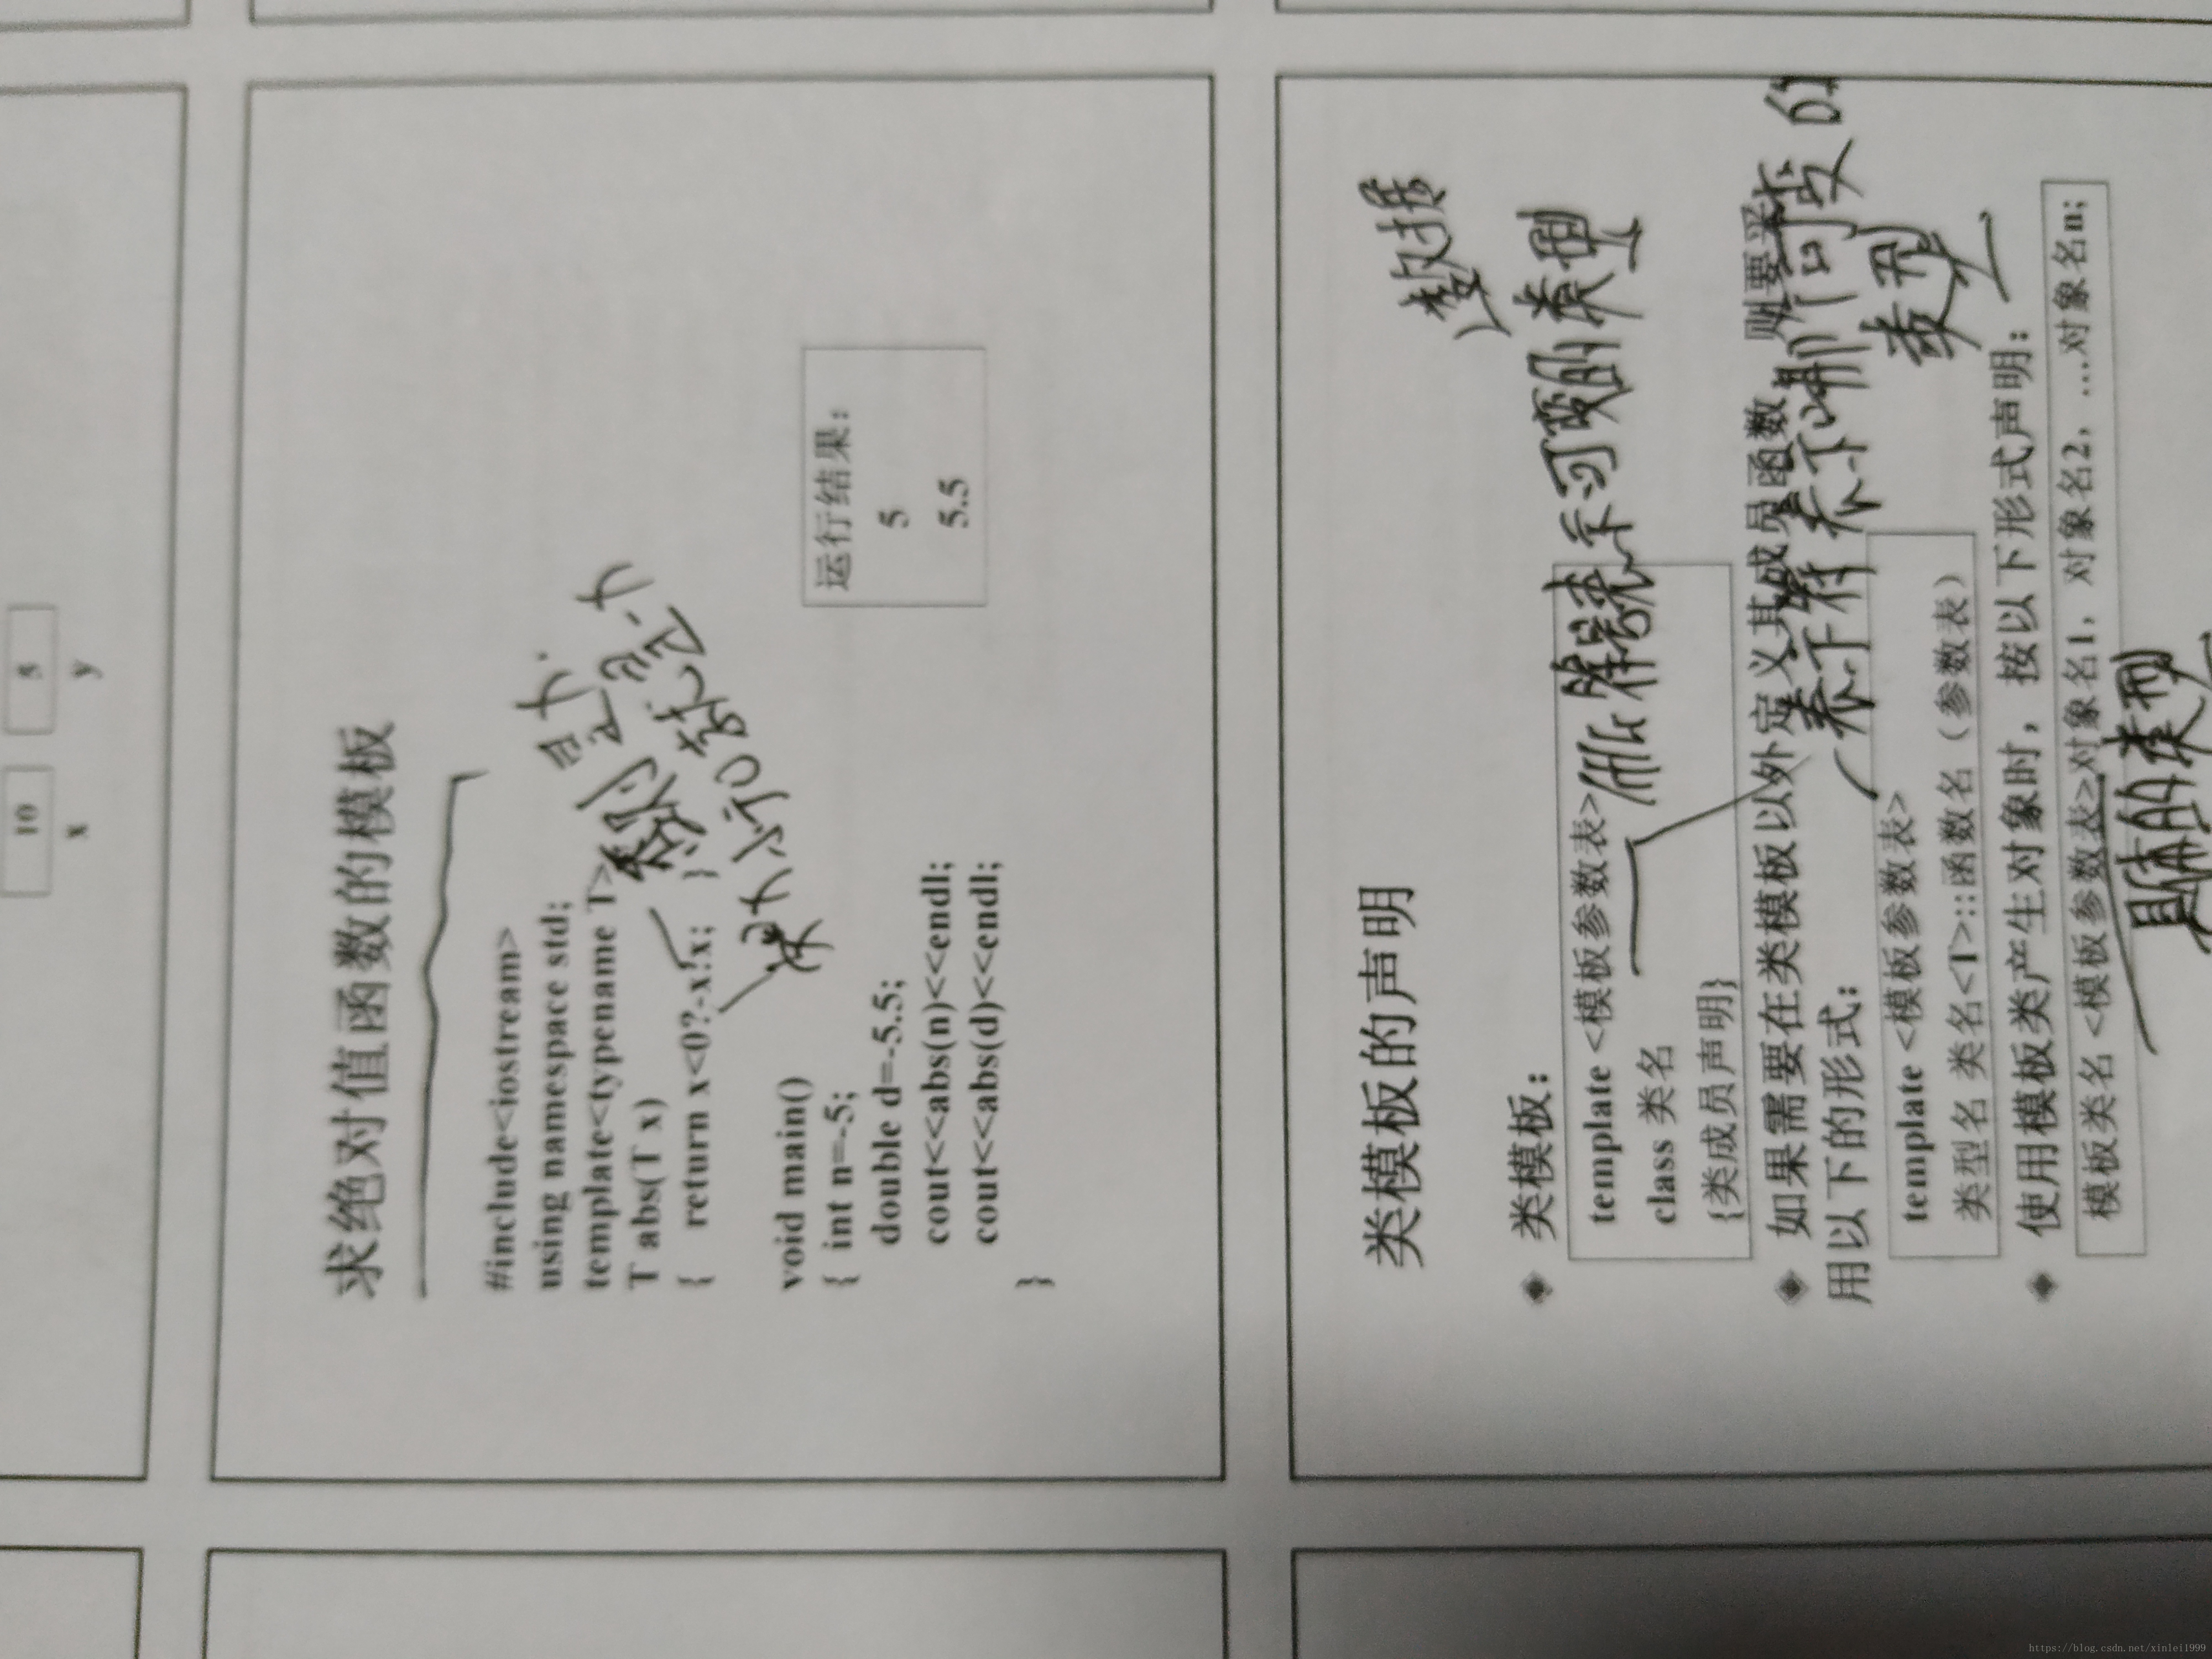 10
5
x
y
求绝对值函数的模板
#include<iostream>
using namespace std;
template<typename T>
T abs(T x)
{ return x<0?-x:x; }
void main()
{ int n=-5;
double d=-5.5;
cout<<abs(n)<<endl;
cout<<abs(d)<<endl;
}
运行结果:
5
5.5
类模板的声明
数据
类模板:
template <模板参数表>
class 类名
{类成员声明}
表示可变的类型
如果需要在类模板以外定义其成员函数, 则要采
用以下的形式:
类型
template <模板参数表>
类型名 类名<T>::函数名(参数表)
使用模板类产生对象时,按以下形式声明:
模板类名 <模板参数表>对象名1,对象名2,....对象名n;
的类型
https://blog.csdn.net/xinlei1999